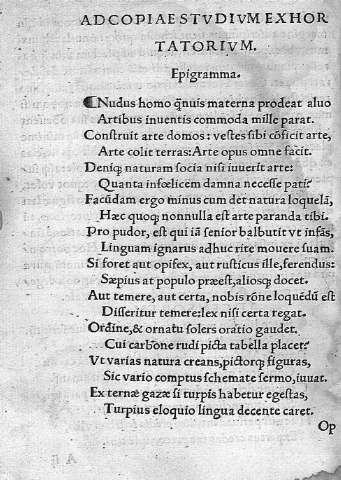 AD COPIAE STVDIVM EXHOR
TATORIVM.
Epigramma.
Nudus homo q̄nuis materna prodeat aluo
Artibus inuentis commoda mille parat.
Construit arte domos: vestes sibi cōficit arte,
Arte colit terras: Arte opus omne facit.
Deniq; naturam socia nisi iuuerit arte:
Quanta infœlicem damna necesse pati?
Facūdam ergo minus cum det natura loquelā,
Hæc quoq; nonnulla est arte paranda tibi.
Pro pudor, est qui iā senior balbutit vt infās,
Linguam ignarus adhuc rite mouere suam.
Si foret aut opifex, aut rusticus ille, ferendus:
Sæpius at populo præest, aliosq; docet.
Aut temere, aut certa, nobis rōne loquēdū est
Disseritur temere: lex nisi certa regat.
Ordine, & ornatu solers oratio gaudet.
Cui carbone rudi picta tabella placet?
Vt varias natura creans, pictorq; figuras,
Sic vario comptus schemate sermo, iuuat.
Externæ gazæ si turpis habetur egestas,
Turpius eloquio lingua decente caret.
Op